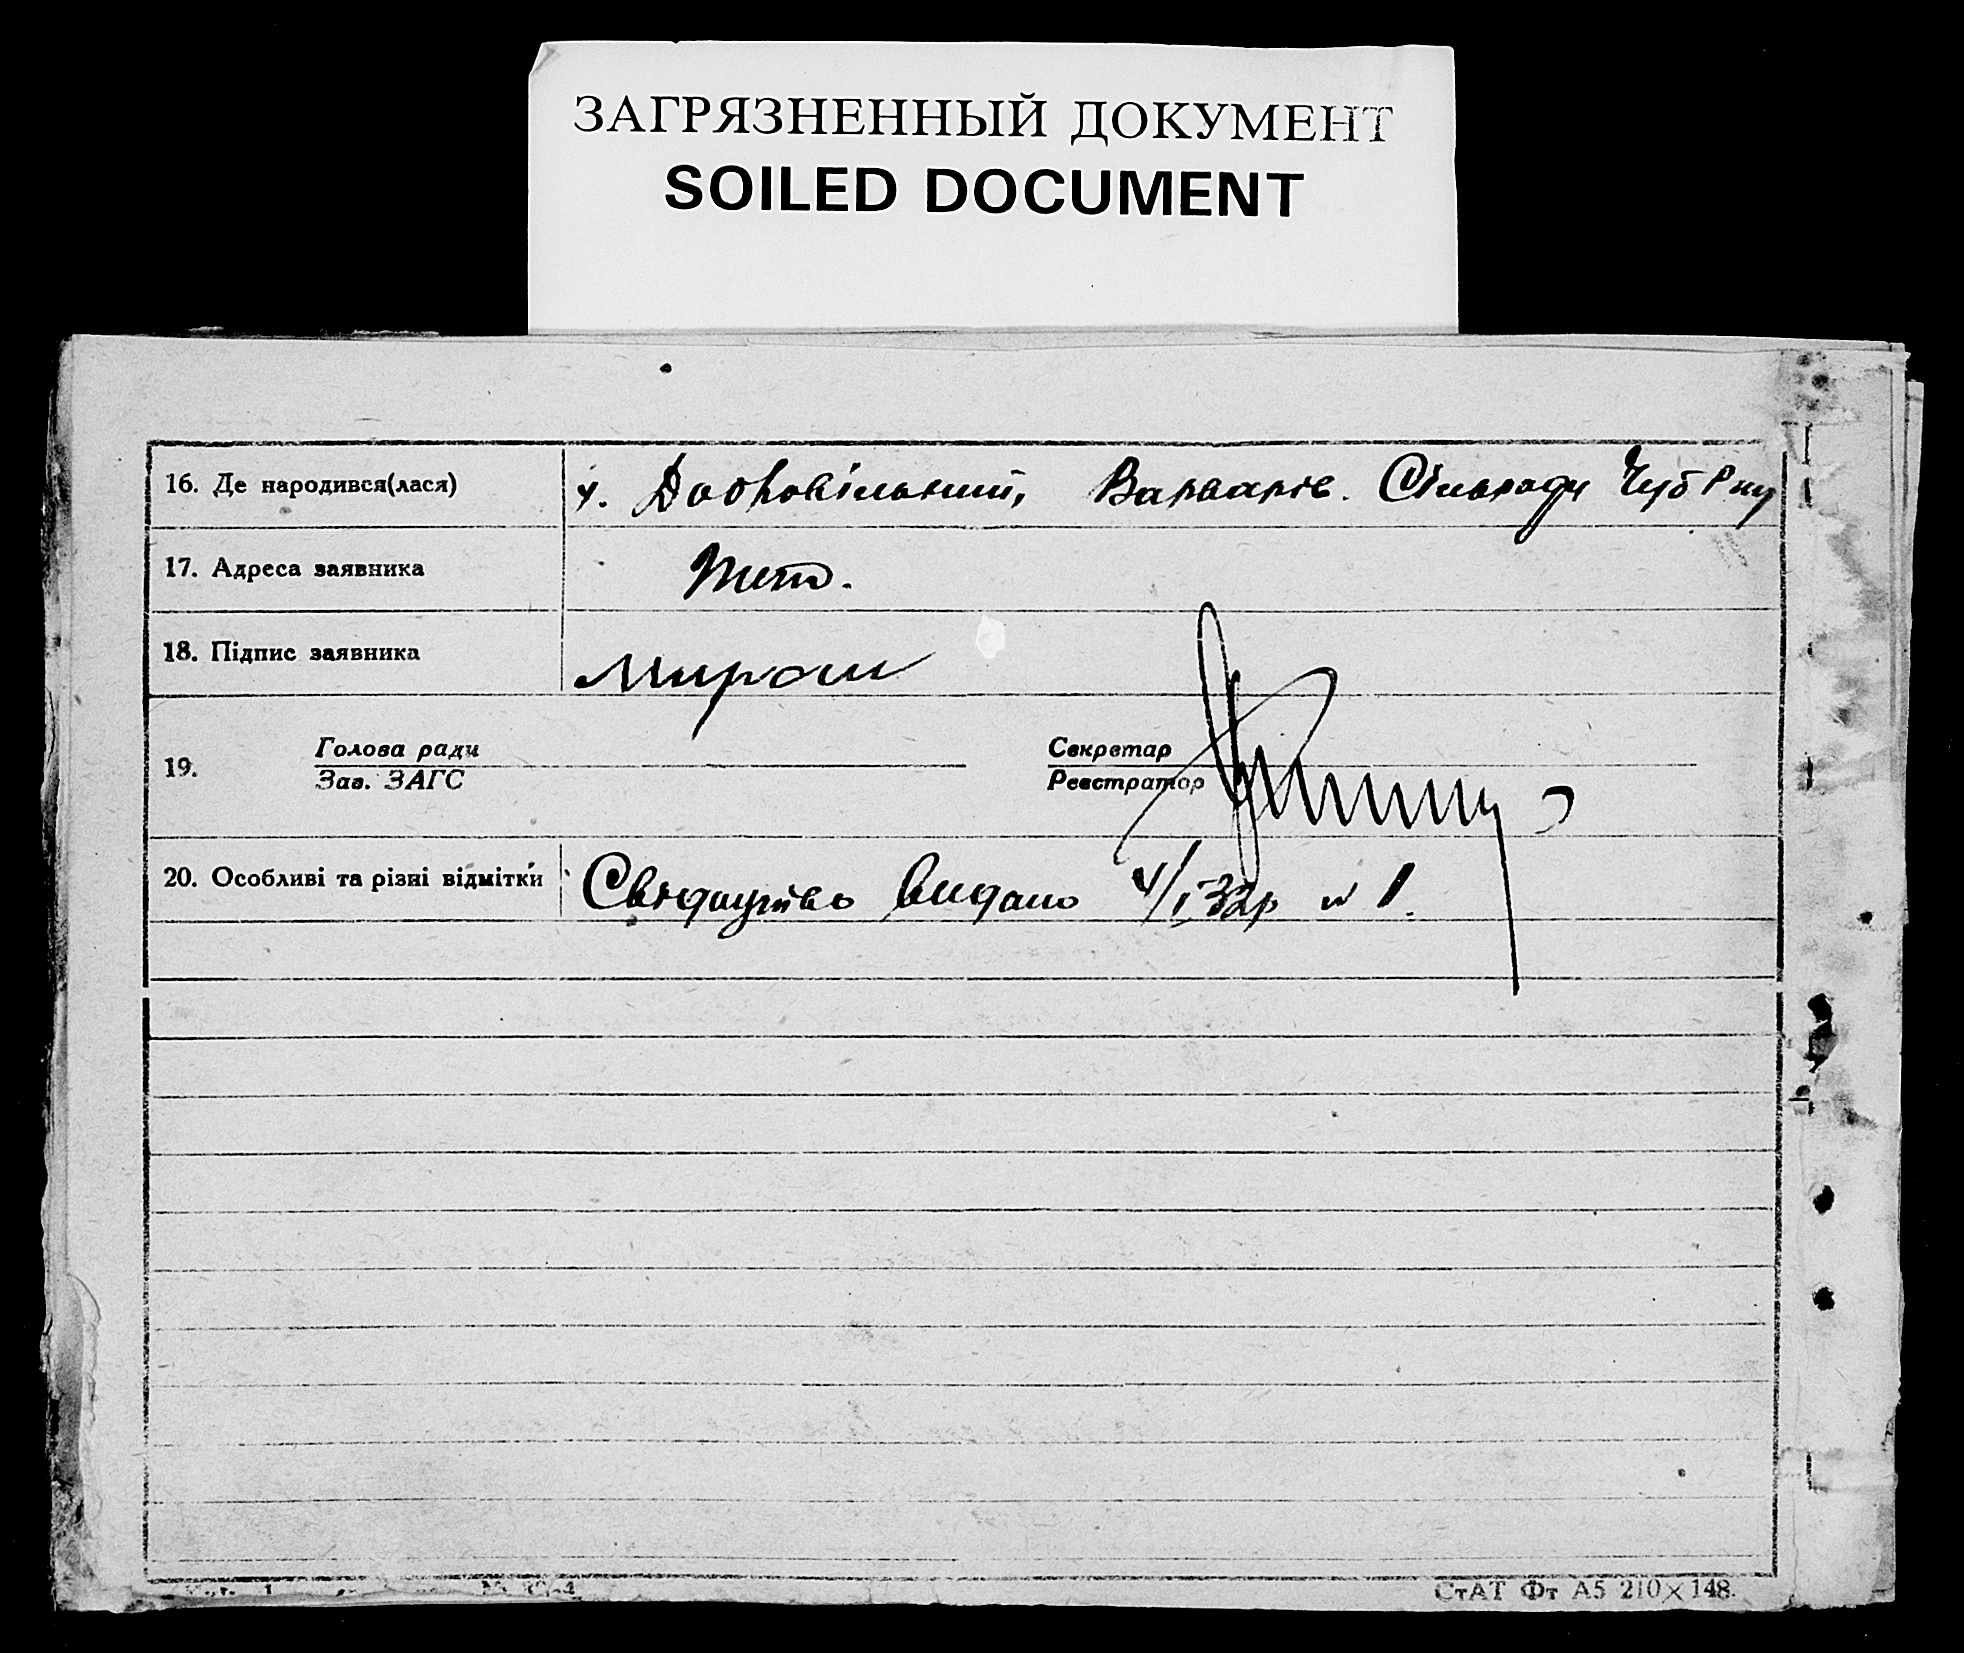 ЗАГРЯЗНЕННЫЙ ДОКУМЕНТ
SOILED DOCUMENT
16. Де народився(лася) х. Добровільний, Варварів. Сільради Чуб Р-ну
17. Адреса заявника Теж.
18. Підпис заявника Мирош
19. Голова ради Секретар
Зав. ЗАГС Реєстратор
20. Особливі та різні відмітки Свідоцтво видано 4/I 32р № 1.
СтАТ Фт А5 210×148.